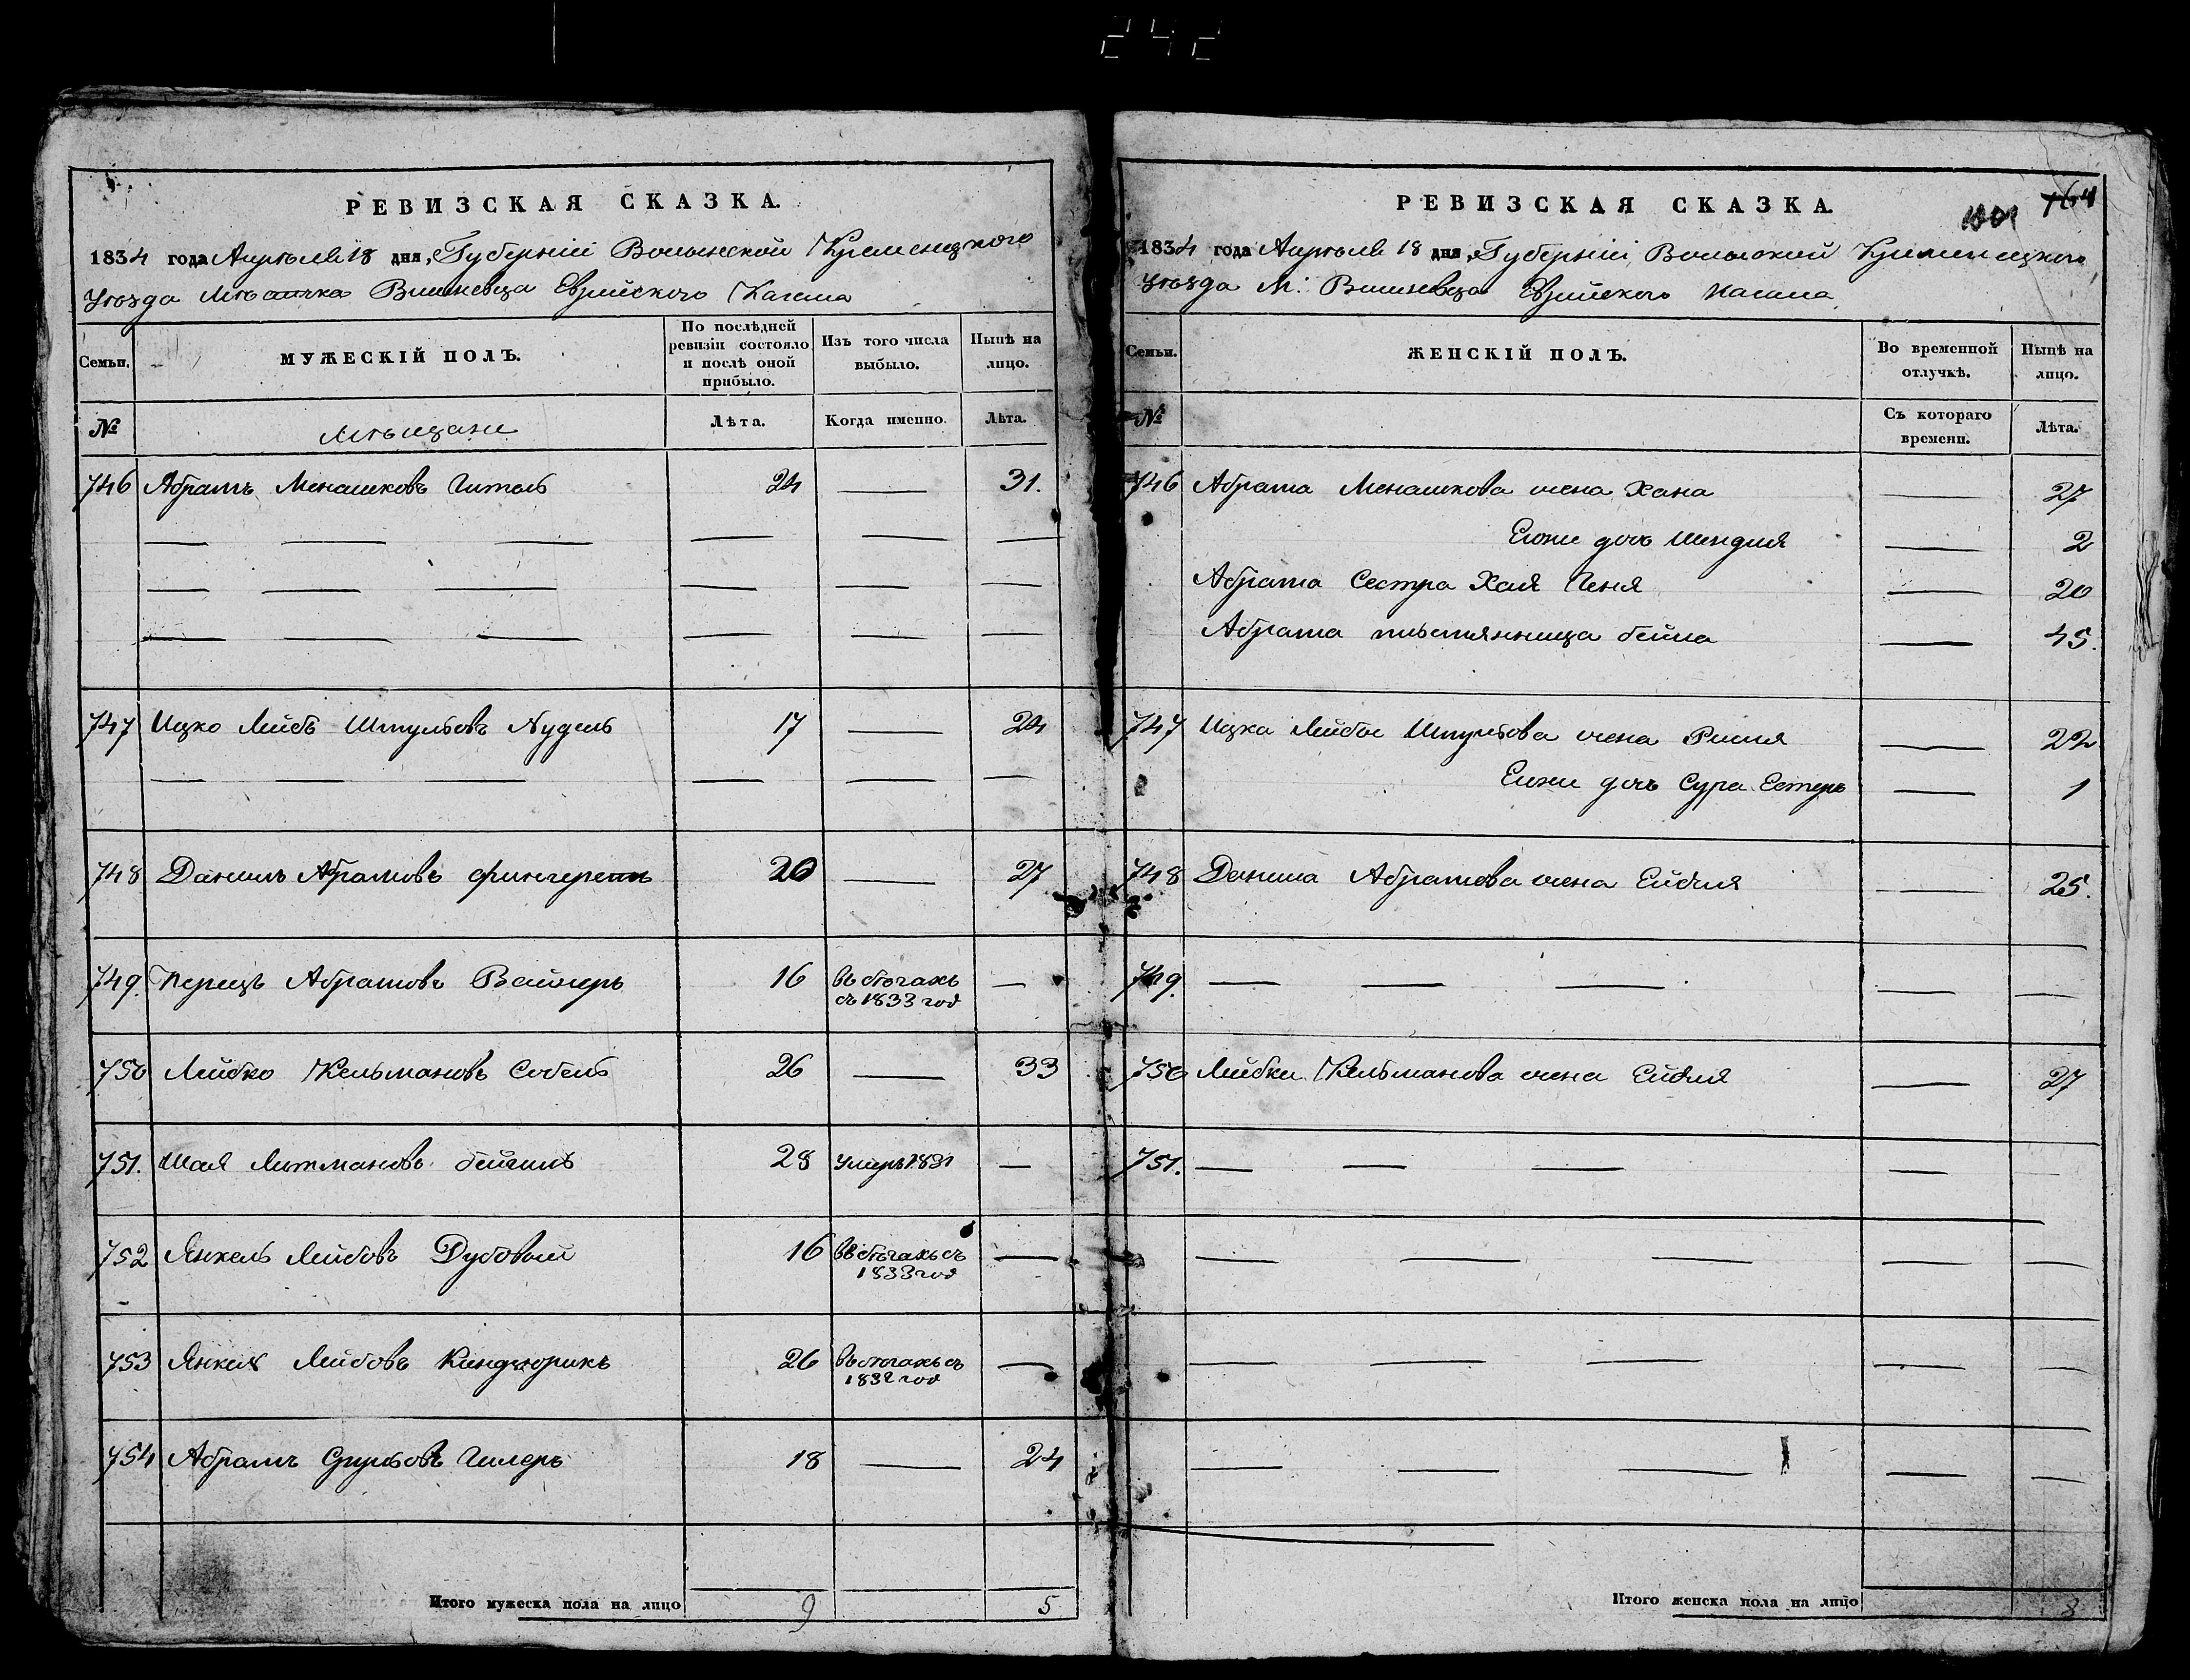 242
РЕВИЗСКАЯ СКАЗКА.
1834 года Апрѣля 18 дня, Губерніи Волынской Кременецкого
Уѣзда Мѣстечка Вишневца Еврейского Кагала
Семьи.
МУЖЕСКІЙ ПОЛЪ.
По послѣдней ревизіи состояло и послѣ оной прибыло.
Изъ того числа выбыло.
Нынѣ на лицо.
№
Мѣщане
Лѣта.
Когда именно.
Лѣта.
746 Абрамъ Менашковъ Гитель 24 — 31.
747 Ицко Лейбъ Шмульовъ Нудель 17 — 24
748 Данилъ Абрамовъ 20 — 27
749. Перецъ Абрамовъ Вайнеръ 16 въ бѣгахъ —
съ 1833 год
750 Лейбко Кельмановъ Собель 26 — 33
751. Шая Литмановъ 28 Умеръ 1831 —
752 Янкель Лейбовъ Дубовый 16 въ бѣгахъ съ —
1833 год
753 Янкель Лейбовъ 26 въ бѣгахъ съ —
1832 год
754 Абрамъ Срульовъ 18 — 24
Итого мужеска пола на лицо 9 5
РЕВИЗСКАЯ СКАЗКА.
764
1834 года Апрѣля 18 дня, Губерніи Волынской Кременецкого
Уѣзда М: Вишневца Еврейского Кагала
Семьи.
ЖЕНСКІЙ ПОЛЪ.
Во временной отлучкѣ.
Нынѣ на лицо.
№
Съ котораго времени.
Лѣта.
746 Абрама Менашкова жена Хана — 27
Еихъ дочь Шендля — 2
Абрама Сестра Хая Геня — 20
Абрама племянница Бейла — 45.
747 Ицка Лейбы Шмульова жена Рися — 22
Еихъ дочь Сура Естеръ — 1
748 Данила Абрамова жена Ейдля — 25.
749. — — — — —
750 Лейбки Кельманова жена Ейдля — 27
751. — — — — —
Итого женска пола на лицо 8